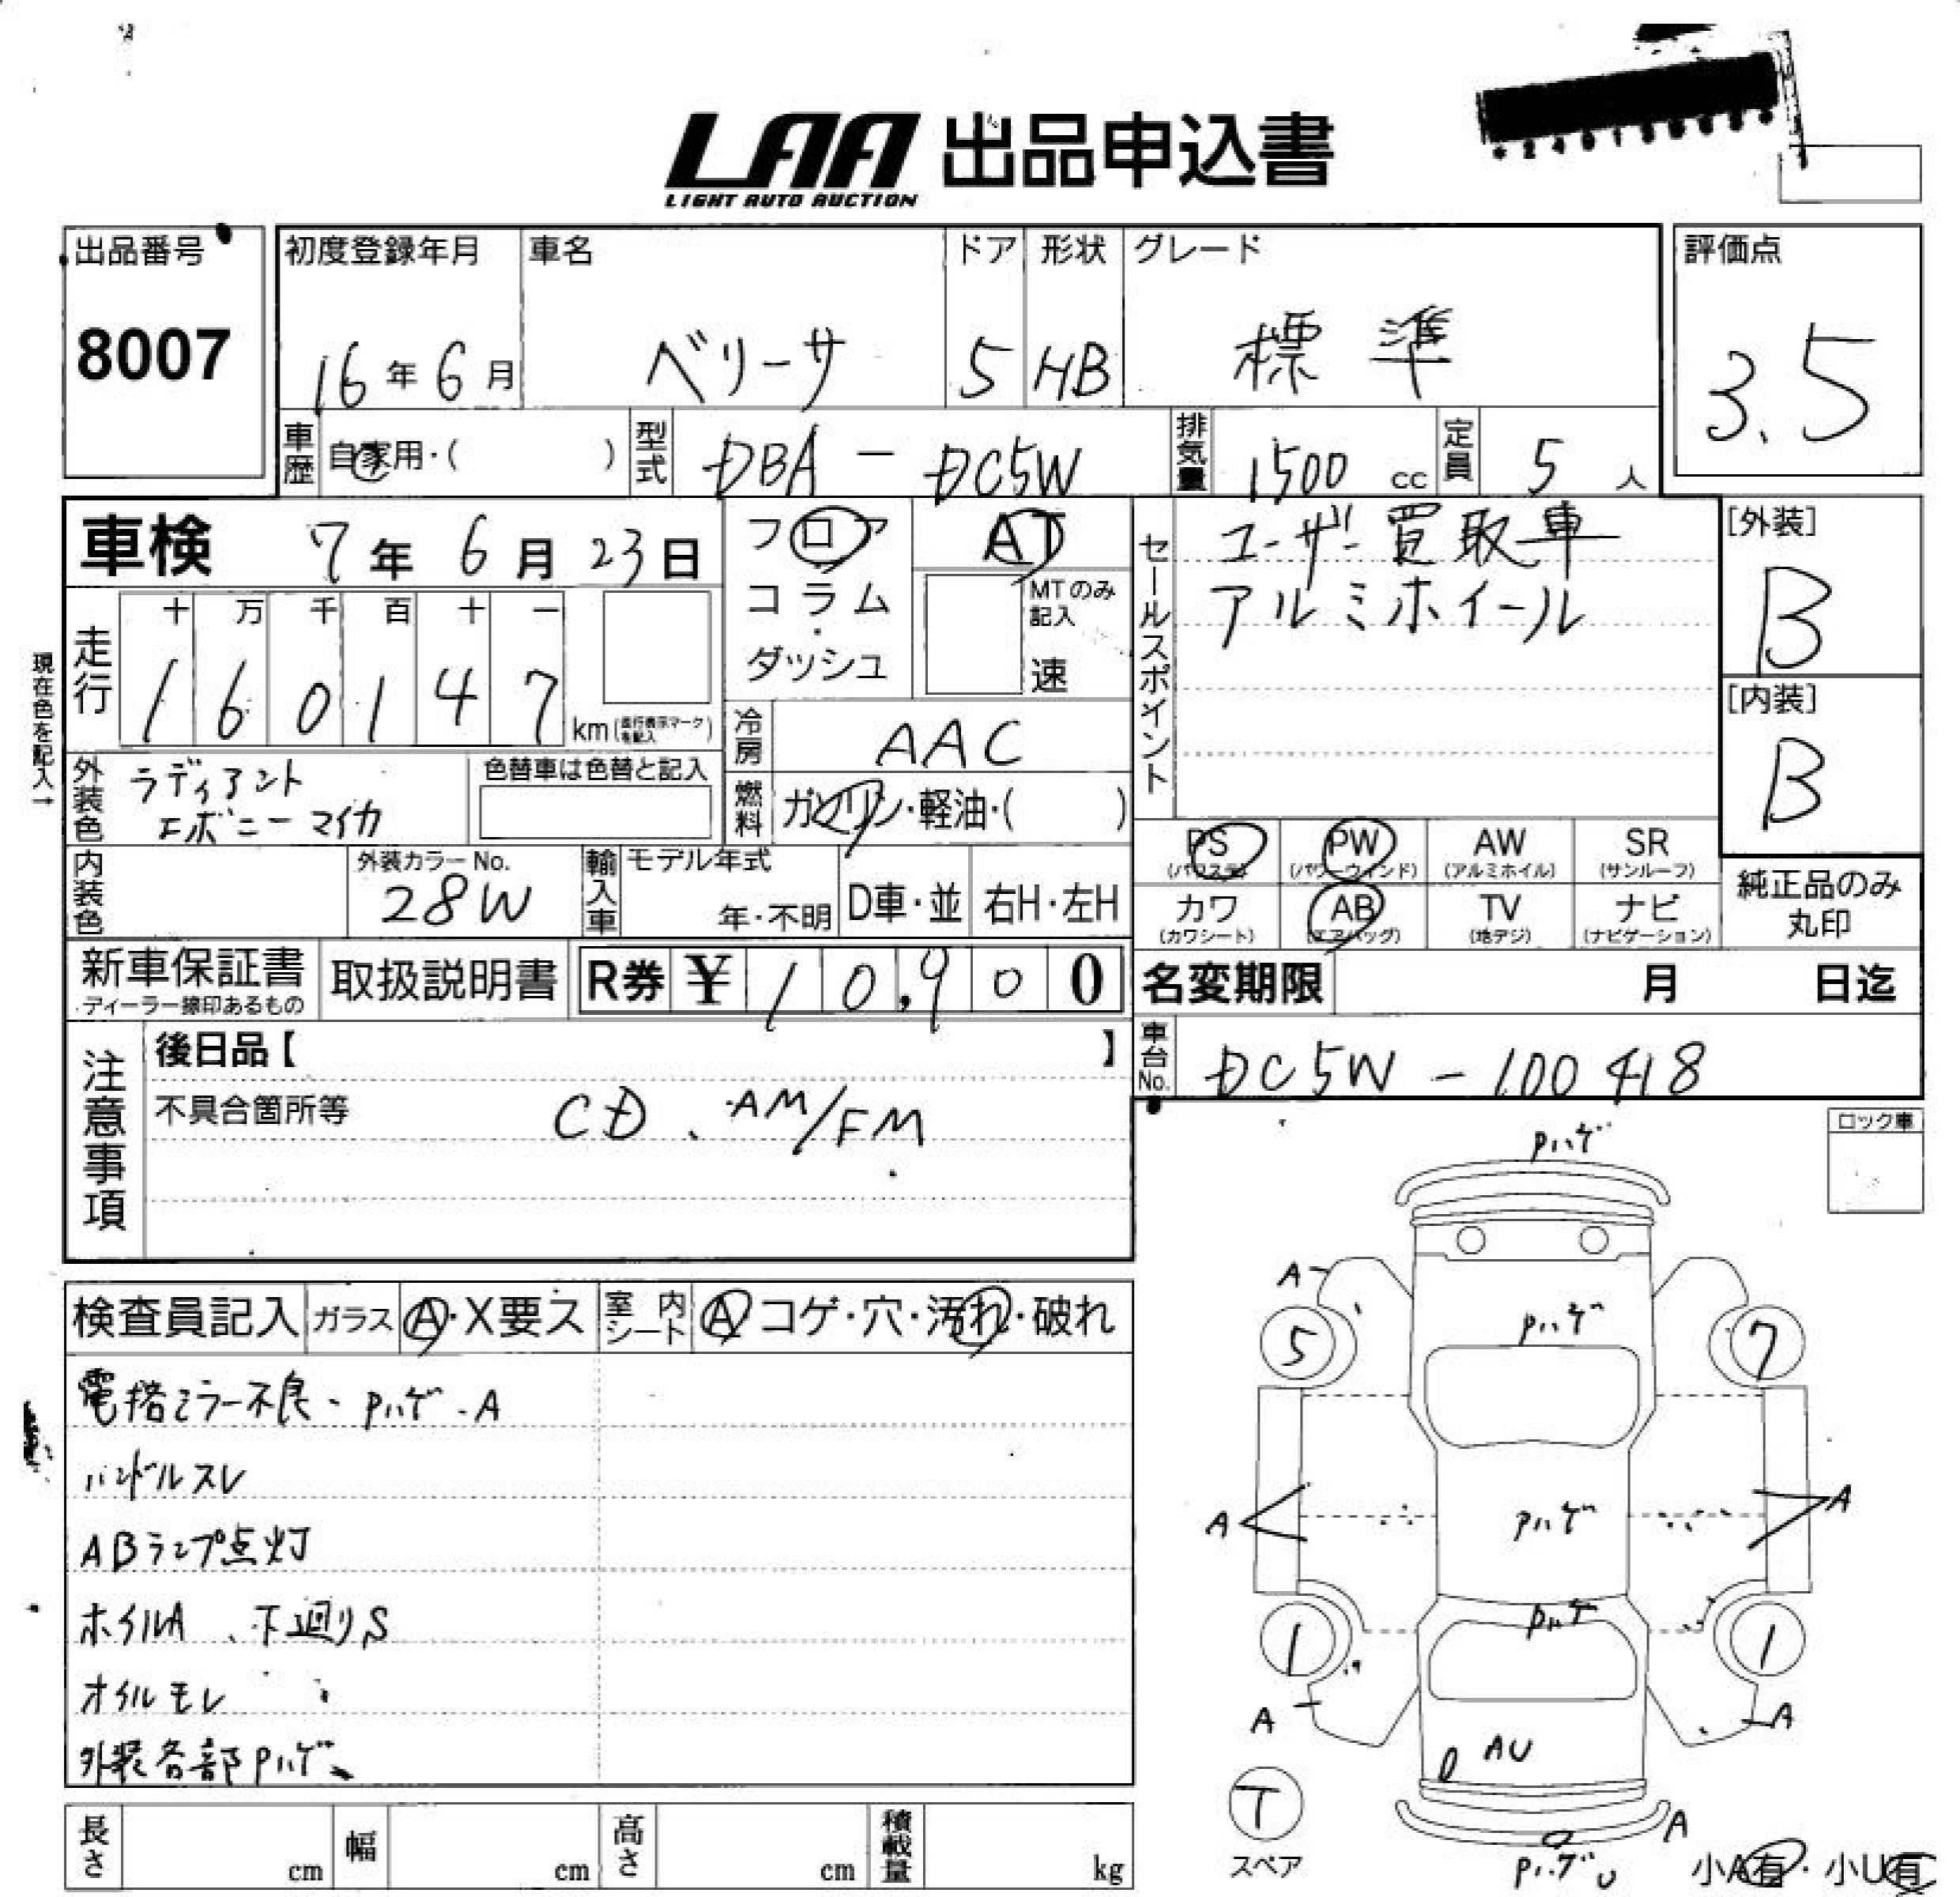 LAA 出品申込書
LIGHT AUTO AUCTION
出品番号
8007
初度登録年月
16年6月
車名
ベリーサ
ドア
5
形状
HB
グレード
標準
評価点
3.5
車歴
自家用・( )
型式
DBA－DC5W
排気量
1500 cc
定員
5人
車検 7年6月23日
フロア
コラム
・
ダッシュ
AT
MTのみ
記入
速
セールスポイント
ユーザー買取車
アルミホイール
[外装]
B
[内装]
B
現在色を記入→
走行
十 万 千 百 十 一
1 6 0 1 4 7
km(走行表示マークを記入)
冷房
AAC
外装色
ラディアント
エボニーマイカ
色替車は色替と記入
燃料
ガソリン・軽油・( )
PS
(パワステ)
PW
(パワーウィンド)
AW
(アルミホイル)
SR
(サンルーフ)
カワ
(カワシート)
AB
(エアバッグ)
TV
(地デジ)
ナビ
(ナビゲーション)
純正品のみ
丸印
内装色
外装カラーNo.
28W
輸入車
モデル年式
年・不明
D車・並
右H・左H
新車保証書
・ディーラー捺印あるもの
取扱説明書
R券 ¥ 10,900
名変期限 月 日迄
車台No.
DC5W－100418
注意事項
後日品【 】
不具合箇所等
CD、AM/FM
ロック車
Pハゲ
A
5
Pハゲ
7
A
Pハゲ
A
Pハゲ
1
1
A
A
AU
T
スペア
A
PハゲU
小A有・小U有
検査員記入
ガラス
A・X要ス
室内
シート
A コゲ・穴・汚れ・破れ
電格ミラー不良、Pハゲ、A
ハンドルスレ
ABランプ点灯
ホイルA、下廻りS
オイルモレ
外装各部Pハゲ
長さ
cm
幅
cm
高さ
cm
積載量
kg